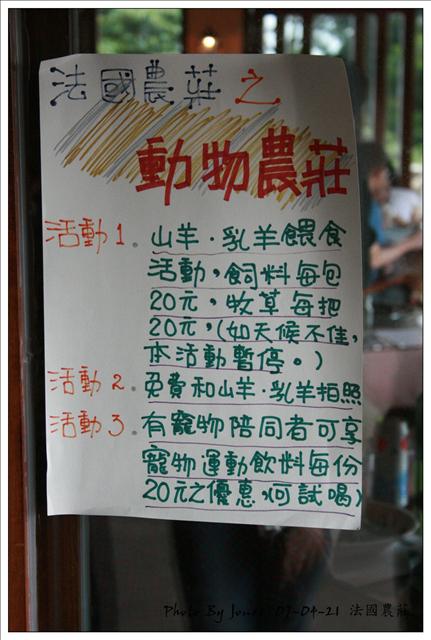 法國農莊之
動物農莊
活動1。山羊.乳羊餵食
活動,飼料每包
20元,牧草每把
20元,(如天候不佳,
本活動暫停。)
活動2。免費和山羊.乳羊拍照
活動3。有寵物陪同者可享
寵物運動飲料每份
20元之優惠,(可試喝)
Photo By Jones 07-04-21 法國農莊